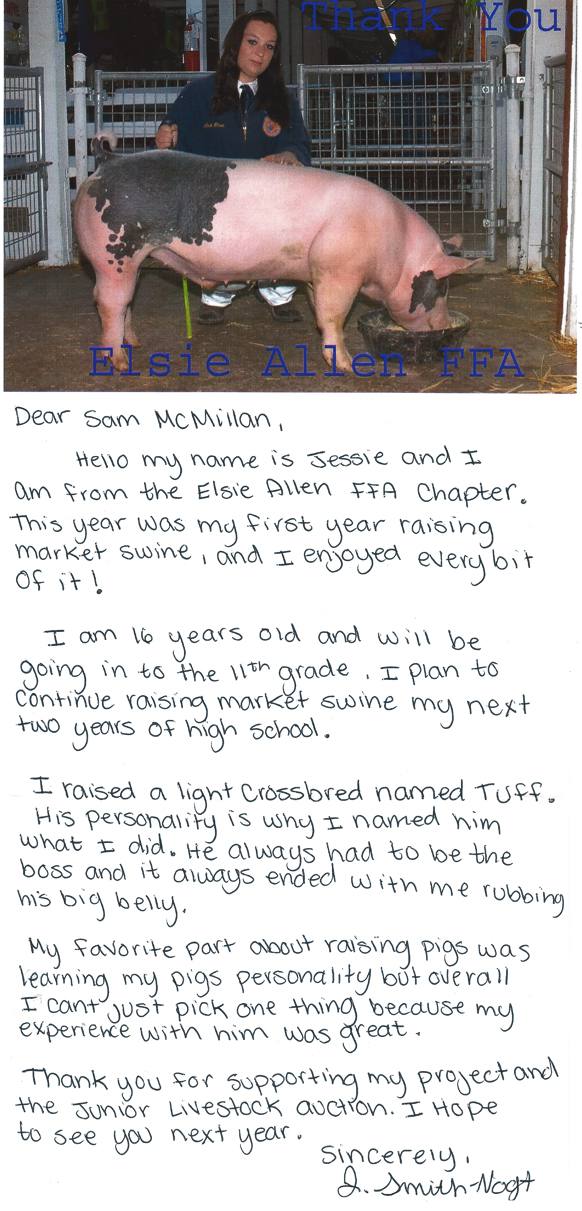 Thank You
Elsie Allen FFA
Dear Sam McMillan,
Hello my name is Jessie and I
am from the Elsie Allen FFA Chapter.
This year was my first year raising
market swine, and I enjoyed every bit
of it!
I am 16 years old and will be
going in to the 11th grade. I plan to
continue raising market swine my next
two years of high school.
I raised a light Crossbred named Tuff.
His personality is why I named him
what I did. He always had to be the
boss and it always ended with me rubbing
his big belly.
My favorite part about raising pigs was
learning my pigs personality but overall
I cant just pick one thing because my
experience with him was great.
Thank you for supporting my project and
the Junior Livestock auction. I Hope
to see you next year.
Sincerely,
J. Smith-Nogt